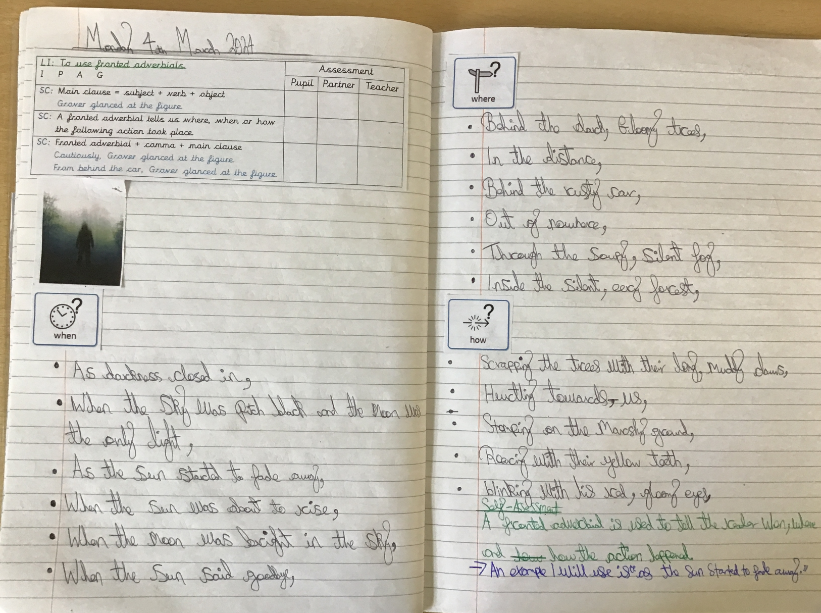 Monday 4th March 2024
LI: To use fronted adverbials.
I P A G
Assessment
Pupil Partner Teacher
SC: Main clause = subject + verb + object
Grover glanced at the figure.
SC: A fronted adverbial tells us where, when or how
the following action took place.
SC: Fronted adverbial + comma + main clause
Cautiously, Grover glanced at the figure.
From behind the car, Grover glanced at the figure.
when
• As darkness closed in,
• When the sky was pitch black and the moon was
the only light,
• As the sun started to fade away,
• When the sun was about to rise,
• When the moon was bright in the sky,
• When the sun said goodbye,
where
• Behind the dark, gloomy trees,
• In the distance,
• Behind the rusty car,
• Out of nowhere,
• Through the soupy, silent fog,
• Inside the silent, eery forest,
how
• Scrapping the trees with their long muddy claws,
• Hurtling towards us,
• Stomping on the marshy ground,
• with their yellow teeth,
• blinking with his red, gloomy eyes,
A fronted adverbial is used to tell the reader when, where
and how the action happened.
→ An example I will use is "as the sun started to fade away."